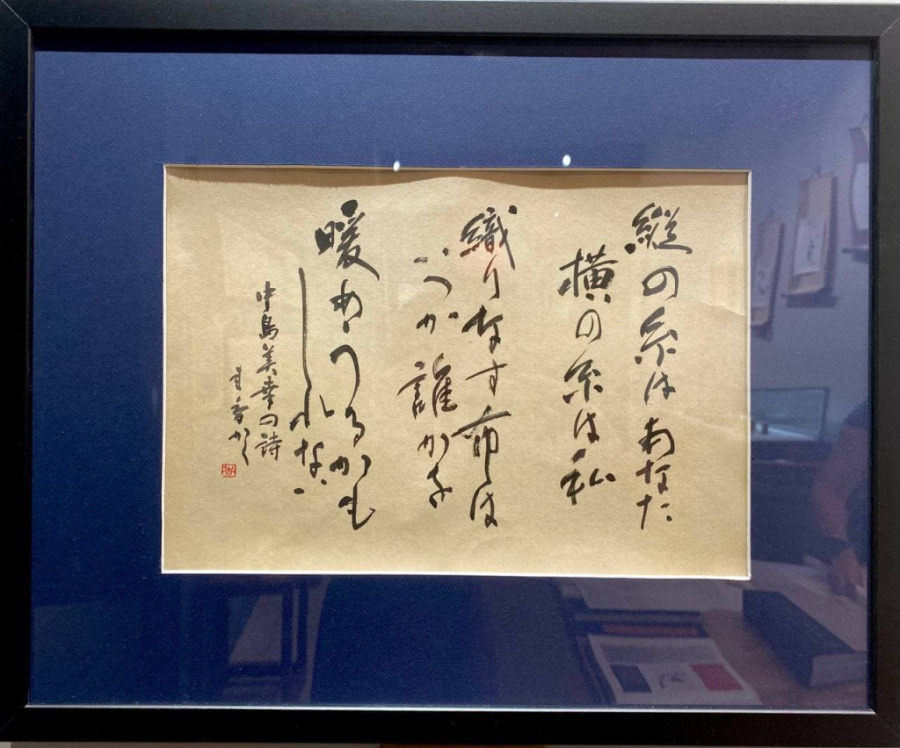 縦の糸はあなた
横の糸は私
織りなす布は
いつか誰かを
暖めうるかも
しれない
中島美幸の詩